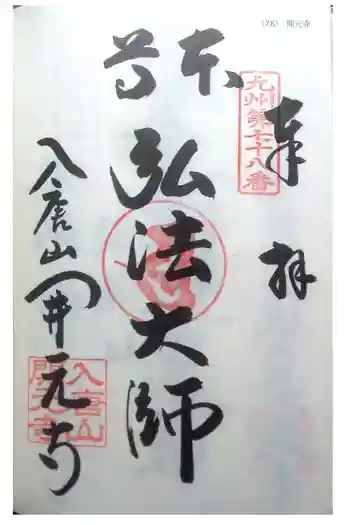 (78) 開元寺
奉拝
九州第七十八番
本尊
弘法大師
入唐山開元寺
入唐山
開元寺